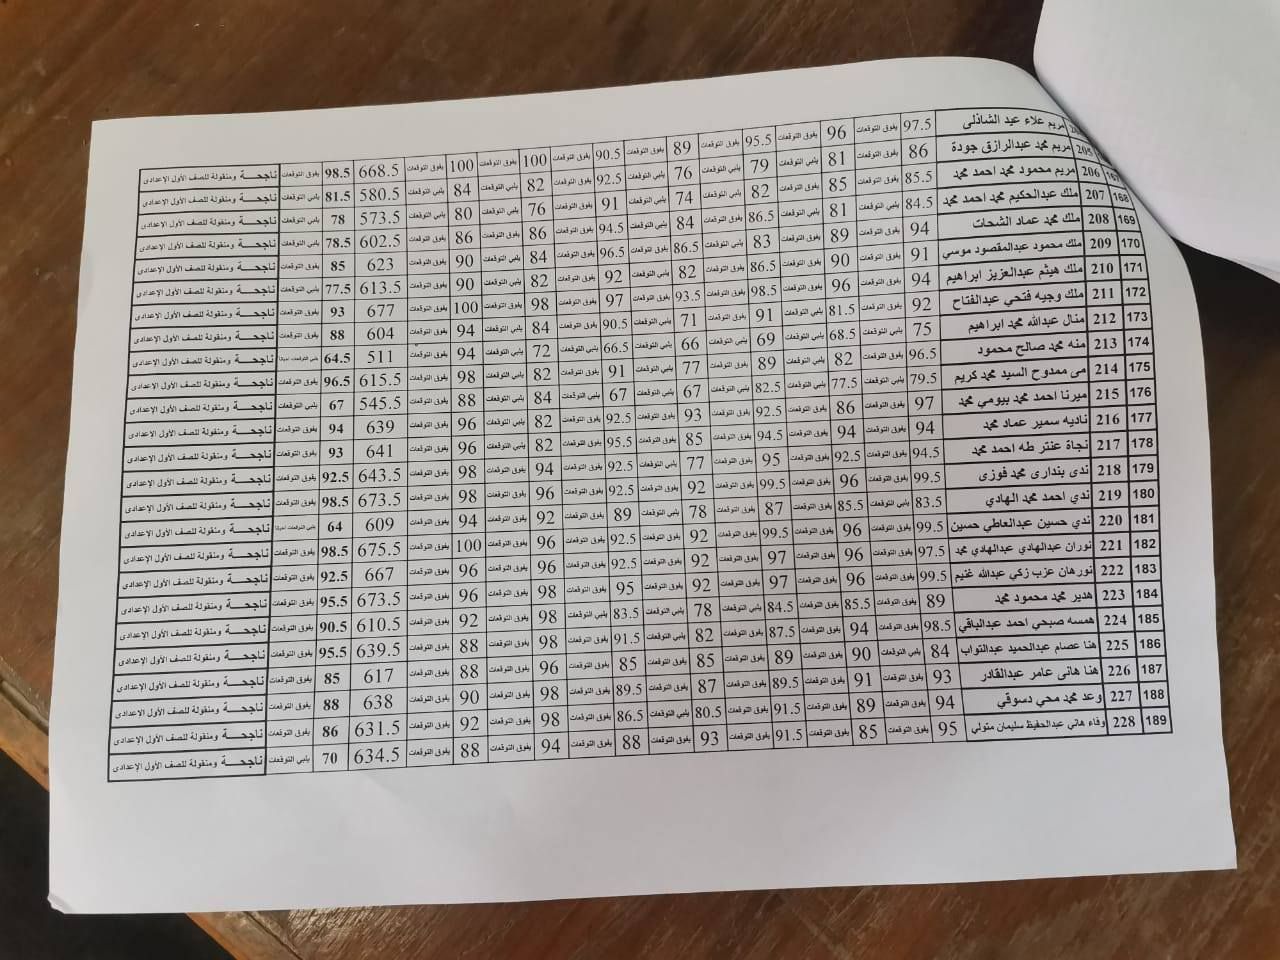 مريم علاء عبد الشاذلى 97.5 يفوق التوقعات 96 يفوق التوقعات 95.5 يفوق التوقعات 89 يفوق التوقعات 90.5 يفوق التوقعات 100 يفوق التوقعات 100 يفوق التوقعات 668.5 98.5 يفوق التوقعات ناجحة ومنقولة للصف الأول الإعدادى
205 مريم محمد عبدالرازق جودة 86 يفوق التوقعات 81 يلبي التوقعات 79 يلبي التوقعات 76 يلبي التوقعات 92.5 يفوق التوقعات 82 يلبي التوقعات 84 يلبي التوقعات 580.5 81.5 يلبي التوقعات ناجحة ومنقولة للصف الأول الإعدادى
167 206 مريم محمود محمد احمد محمد 85.5 يفوق التوقعات 85 يفوق التوقعات 82 يلبي التوقعات 74 يلبي التوقعات 91 يفوق التوقعات 76 يلبي التوقعات 80 يلبي التوقعات 573.5 78 يلبي التوقعات ناجحة ومنقولة للصف الأول الإعدادى
168 207 ملك عبدالحكيم محمد احمد محمد 84.5 يلبي التوقعات 81 يلبي التوقعات 86.5 يفوق التوقعات 84 يلبي التوقعات 94.5 يفوق التوقعات 86 يفوق التوقعات 86 يفوق التوقعات 602.5 78.5 يلبي التوقعات ناجحة ومنقولة للصف الأول الإعدادى
169 208 ملك محمد عماد الشحات 94 يفوق التوقعات 89 يفوق التوقعات 83 يلبي التوقعات 86.5 يفوق التوقعات 96.5 يفوق التوقعات 84 يلبي التوقعات 90 يفوق التوقعات 623 85 يفوق التوقعات ناجحة ومنقولة للصف الأول الإعدادى
170 209 ملك محمود عبدالمقصود موسي 91 يفوق التوقعات 90 يفوق التوقعات 86.5 يفوق التوقعات 82 يلبي التوقعات 92 يفوق التوقعات 82 يلبي التوقعات 90 يفوق التوقعات 613.5 77.5 يلبي التوقعات ناجحة ومنقولة للصف الأول الإعدادى
171 210 ملك هيثم عبدالعزيز ابراهيم 94 يفوق التوقعات 96 يفوق التوقعات 98.5 يفوق التوقعات 93.5 يفوق التوقعات 97 يفوق التوقعات 98 يفوق التوقعات 100 يفوق التوقعات 677 93 يفوق التوقعات ناجحة ومنقولة للصف الأول الإعدادى
172 211 ملك وجيه فتحي عبدالفتاح 92 يفوق التوقعات 81.5 يلبي التوقعات 91 يفوق التوقعات 71 يلبي التوقعات 90.5 يفوق التوقعات 84 يلبي التوقعات 94 يفوق التوقعات 604 88 يفوق التوقعات ناجحة ومنقولة للصف الأول الإعدادى
173 212 منال عبدالله محمد ابراهيم 75 يلبي التوقعات 68.5 يلبي التوقعات 69 يلبي التوقعات 66 يلبي التوقعات 66.5 يلبي التوقعات 72 يلبي التوقعات 94 يفوق التوقعات 511 64.5 يلبي التوقعات احيانا ناجحة ومنقولة للصف الأول الإعدادى
174 213 منه محمد صالح محمود 96.5 يفوق التوقعات 82 يلبي التوقعات 89 يفوق التوقعات 77 يلبي التوقعات 91 يفوق التوقعات 82 يلبي التوقعات 98 يفوق التوقعات 615.5 96.5 يفوق التوقعات ناجحة ومنقولة للصف الأول الإعدادى
175 214 مى ممدوح السيد محمد كريم 79.5 يلبي التوقعات 77.5 يلبي التوقعات 82.5 يلبي التوقعات 67 يلبي التوقعات 67 يلبي التوقعات 84 يلبي التوقعات 88 يفوق التوقعات 545.5 67 يلبي التوقعات ناجحة ومنقولة للصف الأول الإعدادى
176 215 ميرنا احمد محمد بيومي محمد 97 يفوق التوقعات 86 يفوق التوقعات 92.5 يفوق التوقعات 93 يفوق التوقعات 92.5 يفوق التوقعات 82 يلبي التوقعات 96 يفوق التوقعات 639 94 يفوق التوقعات ناجحة ومنقولة للصف الأول الإعدادى
177 216 ناديه سمير عماد محمد 94 يفوق التوقعات 94 يفوق التوقعات 94.5 يفوق التوقعات 85 يفوق التوقعات 95.5 يفوق التوقعات 82 يلبي التوقعات 96 يفوق التوقعات 641 93 يفوق التوقعات ناجحة ومنقولة للصف الأول الإعدادى
178 217 نجاة عنتر طه احمد محمد 94.5 يفوق التوقعات 92.5 يفوق التوقعات 95 يفوق التوقعات 77 يلبي التوقعات 92.5 يفوق التوقعات 94 يفوق التوقعات 98 يفوق التوقعات 643.5 92.5 يفوق التوقعات ناجحة ومنقولة للصف الأول الإعدادى
179 218 ندى بندارى محمد فوزى 99.5 يفوق التوقعات 96 يفوق التوقعات 99.5 يفوق التوقعات 92 يفوق التوقعات 92.5 يفوق التوقعات 96 يفوق التوقعات 98 يفوق التوقعات 673.5 98.5 يفوق التوقعات ناجحة ومنقولة للصف الأول الإعدادى
180 219 ندي احمد محمد الهادي 83.5 يلبي التوقعات 85.5 يفوق التوقعات 87 يفوق التوقعات 78 يلبي التوقعات 89 يفوق التوقعات 92 يفوق التوقعات 94 يفوق التوقعات 609 64 يلبي التوقعات احيانا ناجحة ومنقولة للصف الأول الإعدادى
181 220 ندي حسين عبدالعاطي حسين 99.5 يفوق التوقعات 96 يفوق التوقعات 99.5 يفوق التوقعات 92 يفوق التوقعات 92.5 يفوق التوقعات 96 يفوق التوقعات 100 يفوق التوقعات 675.5 98.5 يفوق التوقعات ناجحة ومنقولة للصف الأول الإعدادى
182 221 نوران عبدالهادي عبدالهادي محمد 97.5 يفوق التوقعات 96 يفوق التوقعات 97 يفوق التوقعات 92 يفوق التوقعات 92.5 يفوق التوقعات 96 يفوق التوقعات 96 يفوق التوقعات 667 92.5 يفوق التوقعات ناجحة ومنقولة للصف الأول الإعدادى
183 222 نورهان عزب زكي عبدالله غنيم 99.5 يفوق التوقعات 96 يفوق التوقعات 97 يفوق التوقعات 92 يفوق التوقعات 95 يفوق التوقعات 98 يفوق التوقعات 96 يفوق التوقعات 673.5 95.5 يفوق التوقعات ناجحة ومنقولة للصف الأول الإعدادى
184 223 هدير محمد محمود محمد 89 يفوق التوقعات 85.5 يفوق التوقعات 84.5 يلبي التوقعات 78 يلبي التوقعات 83.5 يلبي التوقعات 98 يفوق التوقعات 92 يفوق التوقعات 610.5 90.5 يفوق التوقعات ناجحة ومنقولة للصف الأول الإعدادى
185 224 همسه صبحي احمد عبدالباقي 98.5 يفوق التوقعات 94 يفوق التوقعات 87.5 يفوق التوقعات 82 يلبي التوقعات 91.5 يفوق التوقعات 98 يفوق التوقعات 88 يفوق التوقعات 639.5 95.5 يفوق التوقعات ناجحة ومنقولة للصف الأول الإعدادى
186 225 هنا عصام عبدالحميد عبدالتواب 84 يلبي التوقعات 90 يفوق التوقعات 89 يفوق التوقعات 85 يفوق التوقعات 85 يفوق التوقعات 96 يفوق التوقعات 88 يفوق التوقعات 617 85 يفوق التوقعات ناجحة ومنقولة للصف الأول الإعدادى
187 226 هنا هانى عامر عبدالقادر 93 يفوق التوقعات 91 يفوق التوقعات 89.5 يفوق التوقعات 87 يفوق التوقعات 89.5 يفوق التوقعات 98 يفوق التوقعات 90 يفوق التوقعات 638 88 يفوق التوقعات ناجحة ومنقولة للصف الأول الإعدادى
188 227 وعد محمد محي دسوقي 94 يفوق التوقعات 89 يفوق التوقعات 91.5 يفوق التوقعات 80.5 يلبي التوقعات 86.5 يفوق التوقعات 98 يفوق التوقعات 92 يفوق التوقعات 631.5 86 يفوق التوقعات ناجحة ومنقولة للصف الأول الإعدادى
189 228 وفاء هاني عبدالحفيظ سليمان متولي 95 يفوق التوقعات 85 يفوق التوقعات 91.5 يفوق التوقعات 93 يفوق التوقعات 88 يفوق التوقعات 94 يفوق التوقعات 88 يفوق التوقعات 634.5 70 يلبي التوقعات ناجحة ومنقولة للصف الأول الإعدادى